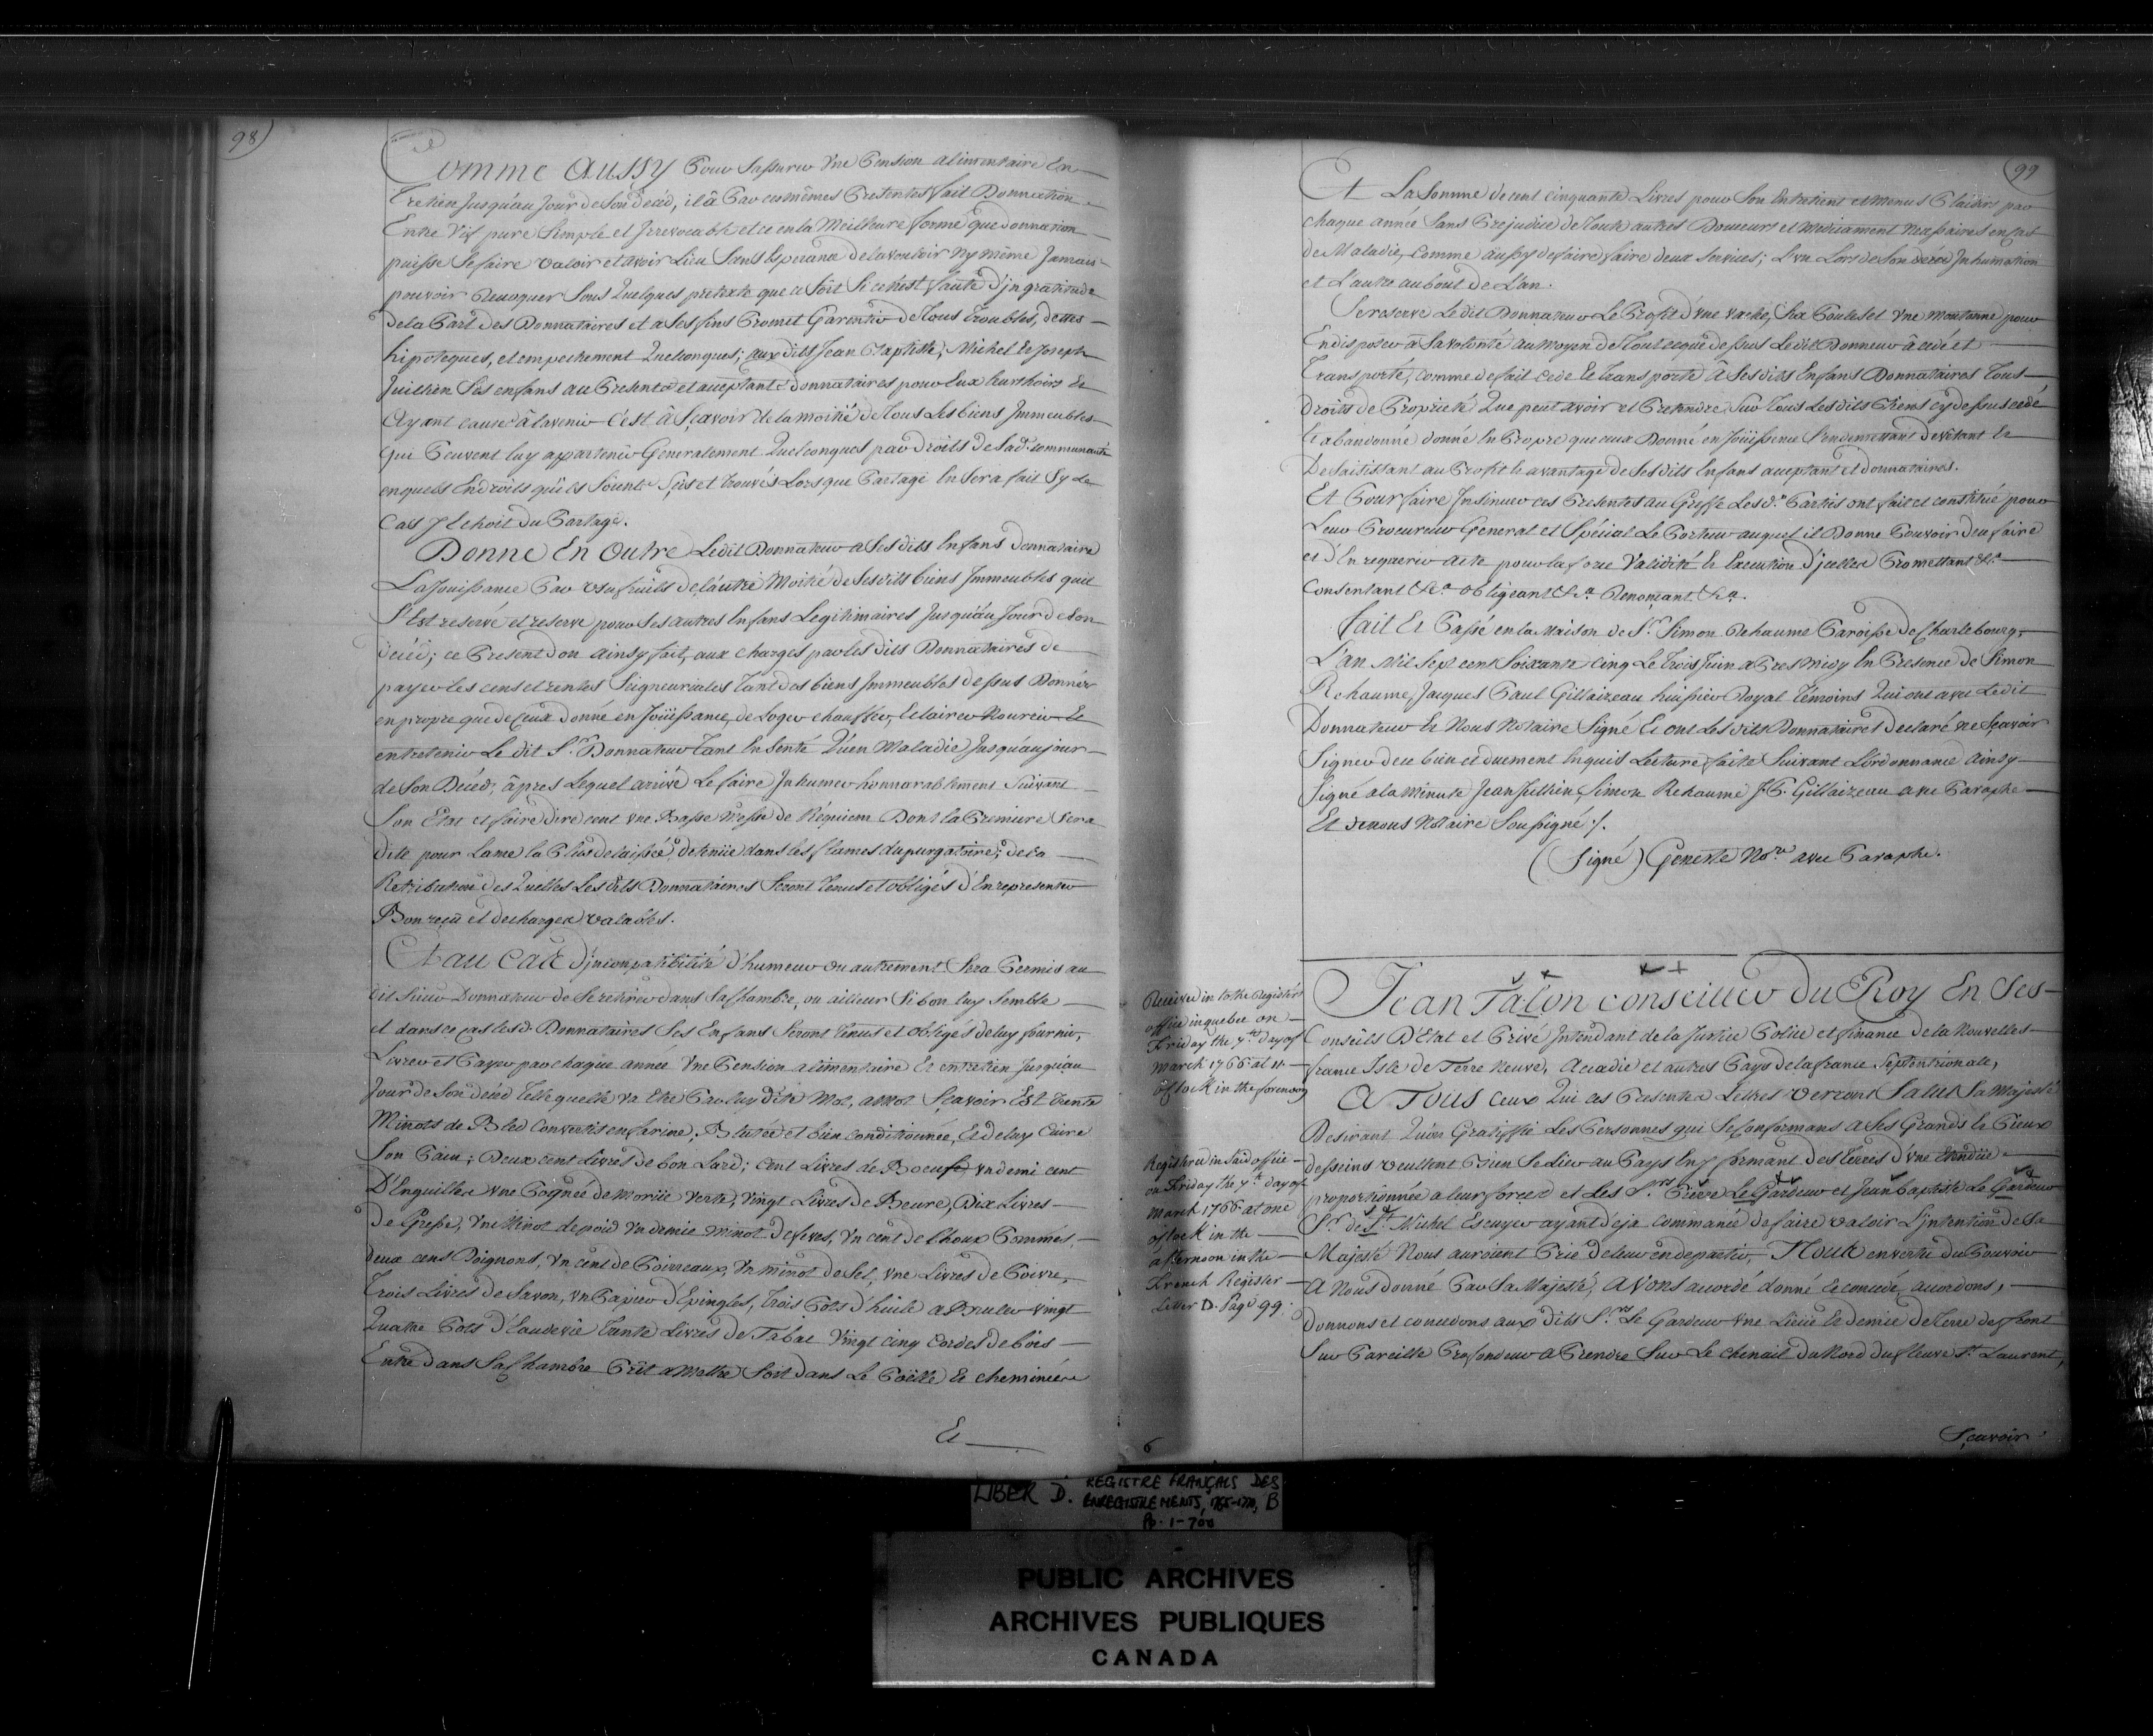 98)
Comme Aussy Pour Sassurer Une Pension alimentaire En
Tretien Jusqu'au Jour de Son décéd, il â Par ces mêmes Presentes fait Donnation
Entre Vif pure Simple et Irrevocable et ce en la Meilleure forme que donnation
puisse Se faire Valoir et avoir Lieu Sans Esperance de la vouloir Ny même Jamais
pouvoir Revoquer Sous Quelques pretexte que ce Soit Si ce n'est faute d'jngratitude
de la Part des Donnataires et a Ses fins Promet Garentir de Tous Troubles, dettes
hipoteques, et empechement Quelconques; aux dits Jean Baptiste, Michel Et Joseph
Juilhien Ses enfans au Presente et acceptants donnataires pour Eux leurs hoirs Et
Ayant cause â lavenir C'est â Sçavoir de la moitié de Tous Les biens Immeubles
qui Peuvent luy appartenir Generalement Quelconques par droits de Sad.e communauté
en quels Endroits qu'ils Soient Scis et trouvés Lorsque Partage En Sera fait Sy Le
Cas Y Echoit du Partage.
Donne En Outre Ledit Donnateur a Ses dits Enfans Donnataire
La Jouissance Par Usufruits de l'autre Moitié de Ses dits biens Immeubles quil
S'Est reservé et reserve pour Ses autres Enfans Legitimaires Jusqu'au Jour de Son
décéd; ce Present don Ainsy fait, aux charges par les dits Donnataires de
payer Les cens et rentes Seigneuriales tant des biens Immeubles dessus Donnés
en propre que de Ceux donné en Joüissance, de Loger chauffer, Eclairer Nourrir Et
entretenir Le dit S.r Donnateur Tant En Senté Qu'en Maladie Jusqu'aujour
de Son Décéd, âpres Lequel arrivé Le faire Inhumer honnorablement Suivant
Son Etat et faire dire cent Une Basse Messe de Réquiem Dont la Premiere Sera
dite pour Lame la Plus delaissée, detenüe dans les flames du purgatoire, de la
Retribution des Quelles Les dits Donnataires Seront Tenus et obligés d'En representer
Bon reçu et decharges valables.
Et au Cas d'jncompatibilité d'humeur ou autrement Sera Permis au
dit Sieur Donnateur de Se retirer dans Sa Chambre, ou ailleur Si bon luy Semble
et dans ce cas les d. Donnataires Ses Enfans Seront Tenus et Obligés de luy fournir,
Livrer et Payer par chaque année Une Pension alimentaire Et entretien Jusqu'au
Jour de Son décéd Telle quelle va Etre Par luy Dite Mot, a Mot Sçavoir Est Trente
Minots de Bled Convertis en farine, Blutée et bien conditionnée, Et de luy Cuire
Son Pain; Deux cent Livres de bon Lard; cent Livres de Boeufs, Un demi cent
D'Enguilles Une Pognée de Moriie verte, Vingt Livres de Beure, Dix Livres
de Gresse, Un Minot de poid Un demie Minot de feves, Un cent de Choux Pommés,
deux cens Doignons, Un cent de Poirreaux, Un minot de Sel, Une Livres de Poivre,
Trois Livres de Savon, Un Papier d'Epingles, Trois Pots d'huile a Bruler Vingt
Quatre Pots d'Eaudevie Tante Livres de Tabac Vingt cinq Cordes de bois
Entré dans Sa Chambre Prêt a Mettre Soit dans Le Poëlle Et cheminée
Et
99
Et La Somme de cent cinquante Livres pour Son Entretient et Menus Plaisirs par
chaque année Sans Prejudice de Toute autres Douceurs et Medicament Necessaires en Cas
de Maladie, Comme aussy de faire faire deux Services; L'un Lors de Son Inhumation
et L'autre au bout de L'an.
Se reserve Ledit Donnateur Le Profit d'une Vache, Six Poules et Une Moutonne pour
En disposer a Sa volonté au moyen de Tout ceque dessus Ledit Donneur â cedé et
Transporté, comme de fait Cede Et Transporte a Ses dits Enfans Donnataires Tous
droits de Proprieté Que peut avoir et Pretendre Sur Tous Les dits Biens cy dessus cedé
Et abandonné donné En Propre que ceux Donné en Joüissance S'en demettant devêtant Et
Desaisistant au Profit Et avantage de Ses dits Enfans acceptant et donnataires.
Et Pour faire Insinuer ces Presentes au Greffe Les d.es Parties ont fait et constitué pour
Leur Procureur General et Spécial Le Porteur auquel il Donne Pouvoir d'en faire
et d'En requerir Acte pour la force Validité Et Execution d'jcelles Promettant &c.a
Consentant &c.a Obligeant &c.a Renonçant &c.a
Fait Et Passé en la Maison de S.r Simon Rehaume Paroisse de Charlebourg,
L'an Mil Sept cent Soixante cinq Le Trois Juin a Pres Midy En Presence de Simon
Rehaume, Jacques Paul Gillaizeau huissier Royal Témoins Qui ont avec Ledit
Donnateur Et Nous Notaire Signé Et ont Les dits Donnataires declaré ne Sçavoir
Signer de ce bien et duement Enquis Lecture faite Suivant L'ordonnance Ainsy
Signé a la Minute Jean Jullien, Simon Rehaume J. P. Gillaizeau avec Paraphe
Et de nous Notaire Soussigné ./.
(Signé) Geneste No.re avec Paraphe.
Received in to the Registers
office in quebec on
Friday the 7.th day of
March 1766 at 11
oClock in the forenoon
Registered in Said office
on Friday the 7.th day of
March 1766 at one
oClock in the
afternoon in the
French Register
Liber D. Page 99.
Jean Talon conseiller du Roy En Ses
Conseils D'Etat et Privé Intendant de la Justice Police et finance de la Nouvelles
france Isle de Terre Neuve, Accadie et autres Pays de la france Septentrionale,
A Tous Ceux Qui ces Presentes Lettres Verront Salut Sa Majesté
Desirant Qu'on Gratiffie Les Personnes qui Se Conformans a Ses Grands Et Pieux
desseins veullent bien Se Lier au Pays En y formant des Terres d'Une Etendüe
proportionnée a leur forces et Les S.rs Pierre Le Gardeur et Jean baptiste Le Gardeur
S.r de S.t Michel Escuyer ayant deja commancé de faire valoir L'jntention de Sa
Majesté Nous auroient Prié de leur en departir, Nous en vertu du Pouvoir
A Nous donné Par Sa Majesté, Avons accordé donné Et concedé, accordons,
donnons et concedons aux dits S.rs Le Gardeur Une Lieüe Et demie de Terre de front
Sur Pareille Profondeur a Prendre Sur Le chenail du Nord du fleuve S.t Laurent,
Sçavoir
6
LIBER D. REGISTRE FRANÇAIS DES
ENREGISTREMENTS, 1765-1770, B
Pp. 1-700
PUBLIC ARCHIVES
ARCHIVES PUBLIQUES
CANADA